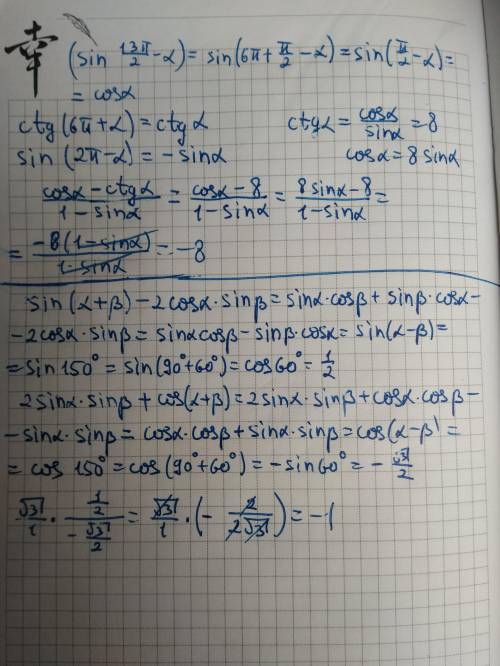 幸
(sin 13π/2 - α) = sin(6π + π/2 - α) = sin(π/2 - α) =
= cosα
ctg(6π + α) = ctgα
ctgα = cosα/sinα = 8
sin (2π - α) = - sinα
cosα = 8 sinα
(cosα - ctgα)/(1 - sinα) = (cosα - 8)/(1 - sinα) = (8 sinα - 8)/(1 - sinα) =
= (-8(1 - sinα))/(1 - sinα) = -8
sin (α + β) - 2cosα · sinβ = sinα · cosβ + sinβ · cosα -
- 2cosα · sinβ = sinα cosβ - sinβ · cosα = sin(α - β) =
= sin 150° = sin(90° + 60°) = cos60° = 1/2
2sinα · sinβ + cos(α + β) = 2sinα · sinβ + cosα · cosβ -
- sinα · sinβ = cosα · cosβ + sinα · sinβ = cos(α - β) =
= cos 150° = cos(90° + 60°) = - sin60° = - √3/2
√3/1 · (1/2)/(-√3/2) = √3/1 · (- 2/(2√3)) = -1